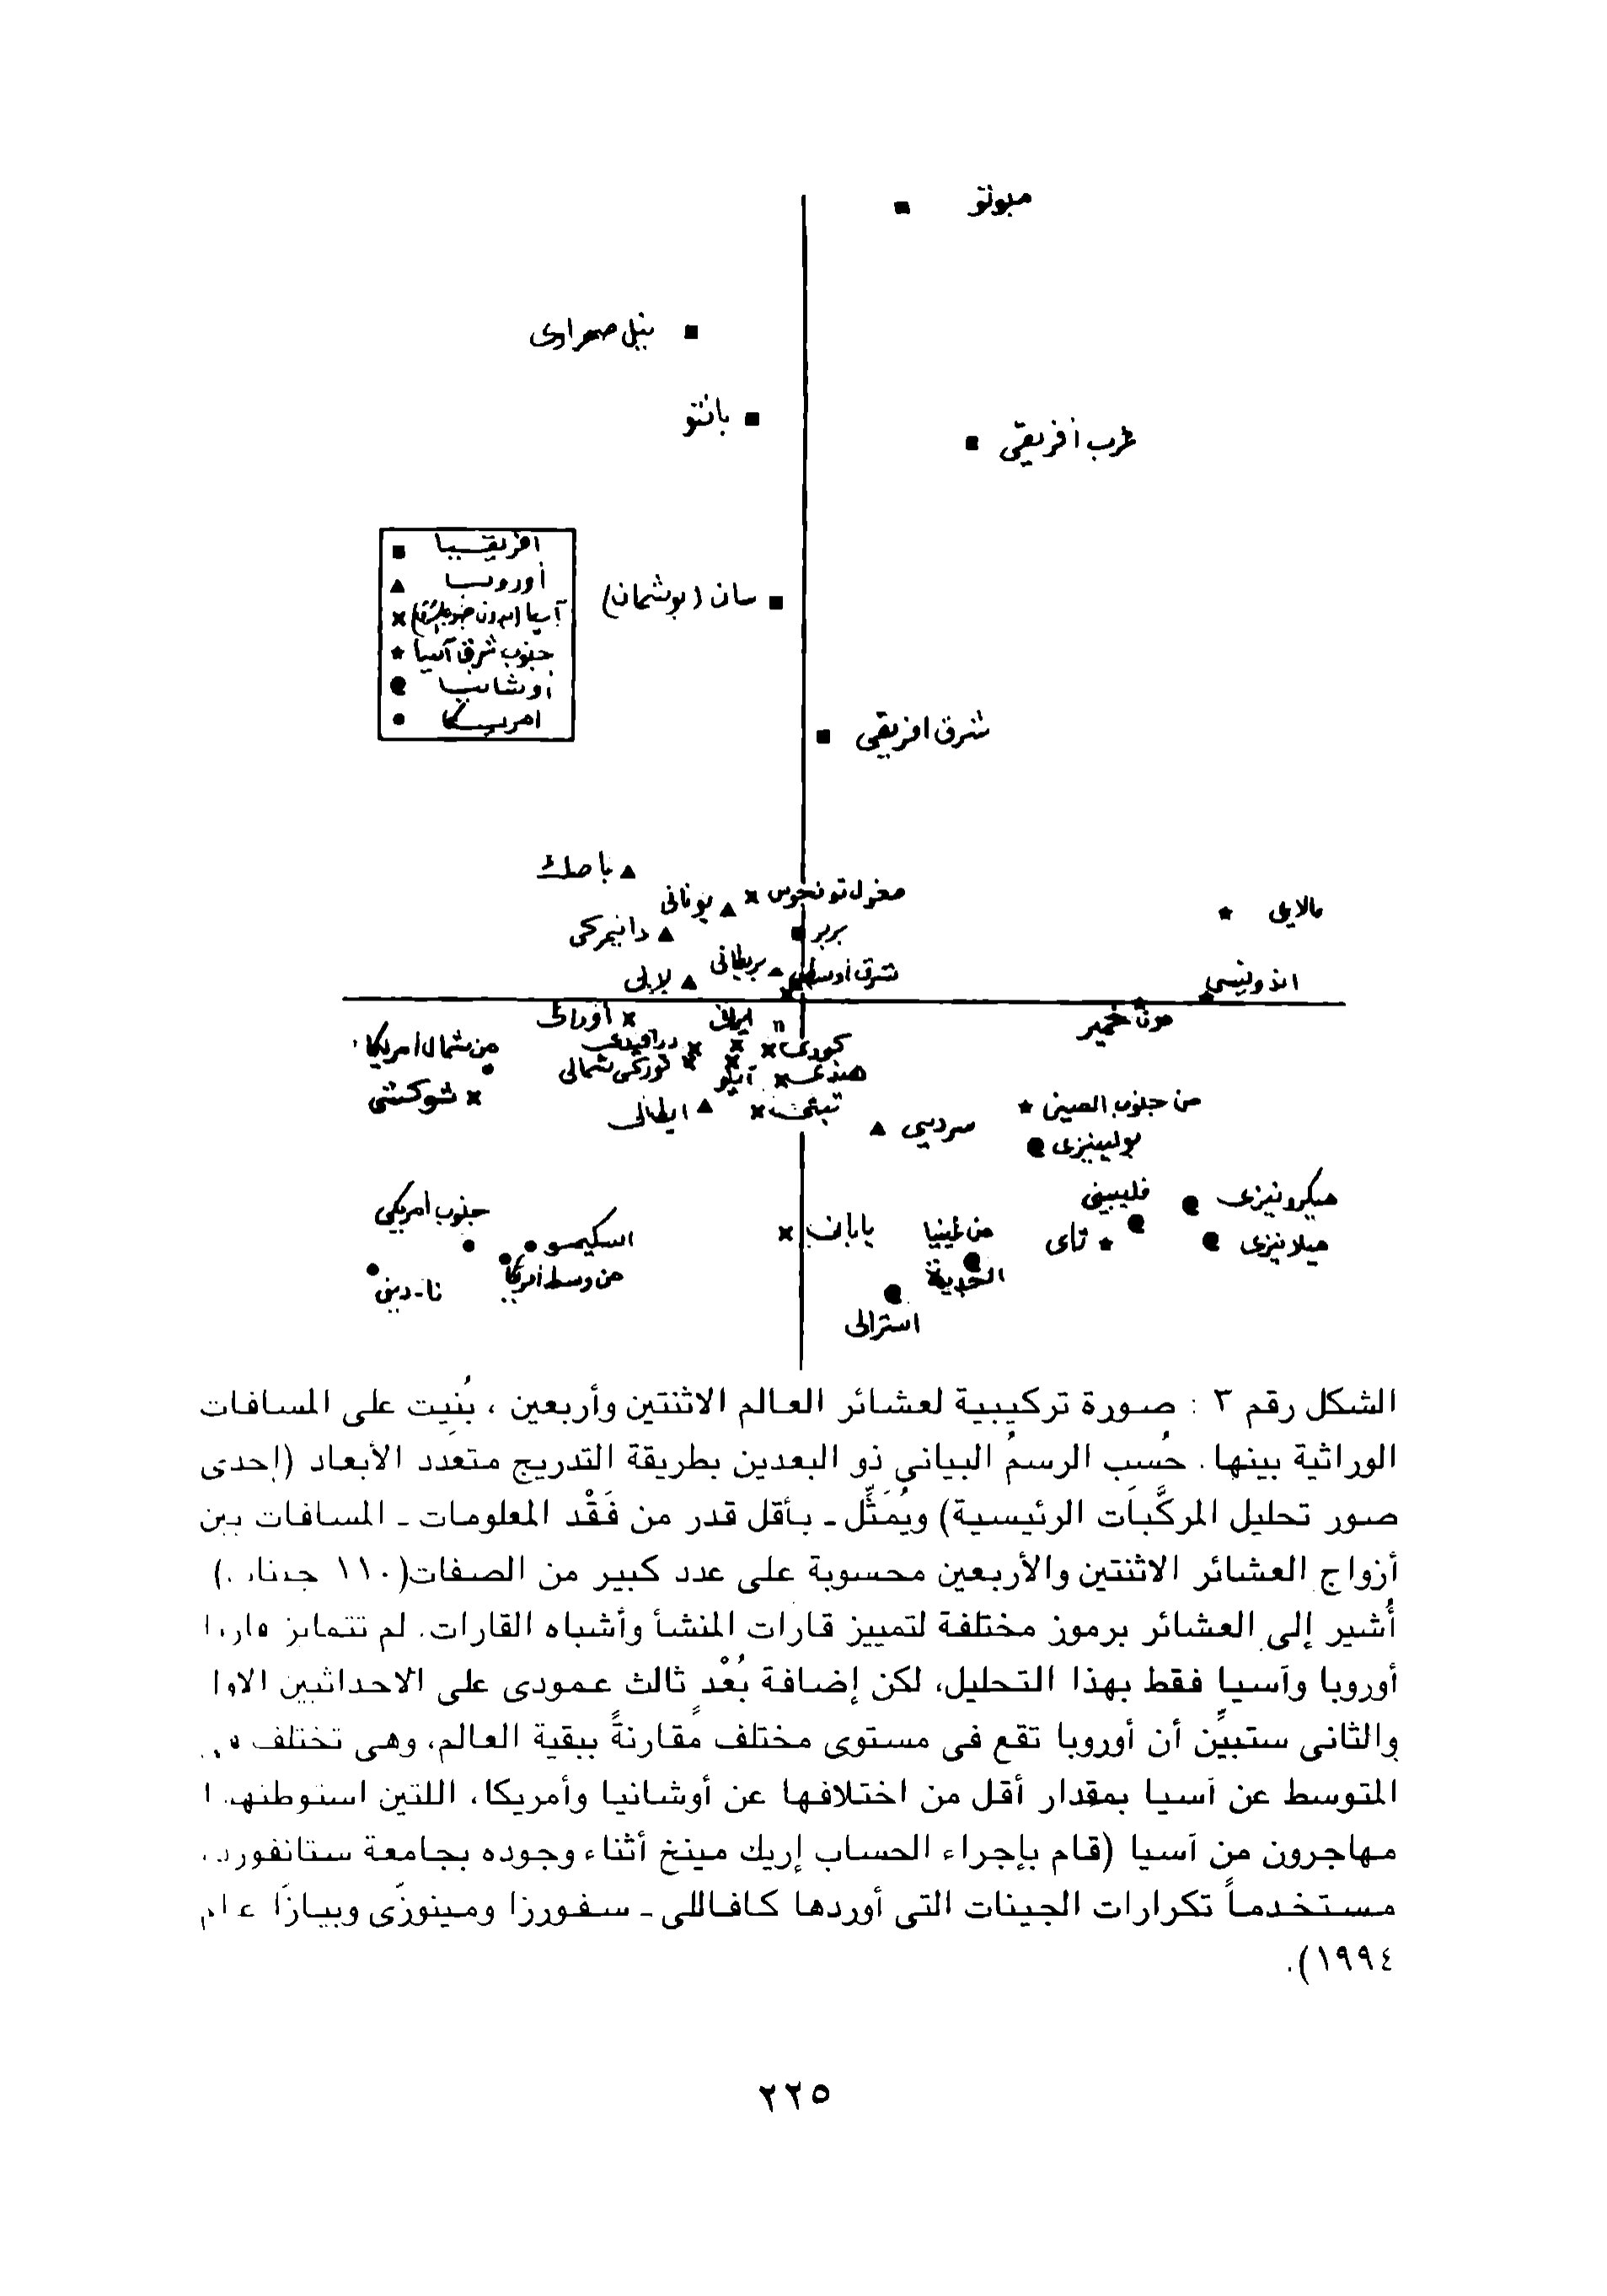 مبوتو
نيل صحراوى
بانتو
غرب أفريقى
افريقيا
أوروبا
جنوب شرق آسيا
أوشانيا
امريكا
سان (بوشمان)
شرق افريقى
باسك
يونانى
مغول تونجوس
مالايى
دانيمركى
بربر
بريطانى
لابى
اندونيسى
ايرانى
مون خمير
من شمال أمريكا
درافيدى
كورى
توركى شمالى
آينو
هندى
شوكتشى
ايطالى
تبتى
سردينى
من جنوب الصين
بولينيزى
فليبينى
ميكرونيزى
جنوب أمريكى
اسكيمو
يابانى
من غينيا
الجديدة
تاى
ميلانيزى
نا-دينى
من وسط أمريكا
استرالى
الشكل رقم ٣ : صورة تركيبية لعشائر العالم الاثنتين وأربعين ، بُنِيت على المسافات
الوراثية بينها. حُسب الرسمُ البيانى ذو البعدين بطريقة التدريج متعدد الأبعاد (إحدى
صور تحليل المركَّبات الرئيسية) ويُمَثِّل ـ بأقل قدر من فَقْد المعلومات ـ المسافات بين
أزواج العشائر الاثنتين والأربعين محسوبة على عدد كبير من الصفات (١١٠
أُشير إلى العشائر برموز مختلفة لتمييز قارات المنشأ وأشباه القارات. لم تتمايز
أوروبا وآسيا فقط بهذا التحليل، لكن إضافة بُعْدٍ ثالث عمودى على الاحداثيين
والثانى ستبيِّن أن أوروبا تقع فى مستوى مختلف مقارنةً ببقية العالم، وهى تختلف
المتوسط عن آسيا بمقدار أقل من اختلافها عن أوشانيا وأمريكا، اللتين استوطنهما
مهاجرون من آسيا (قام بإجراء الحساب إريك مينخ أثناء وجوده بجامعة ستانفورد،
مستخدماً تكرارات الجينات التى أوردها كافاللى ـ سفورزا ومينوزّى وبيازّا عام
١٩٩٤).
٢٢٥